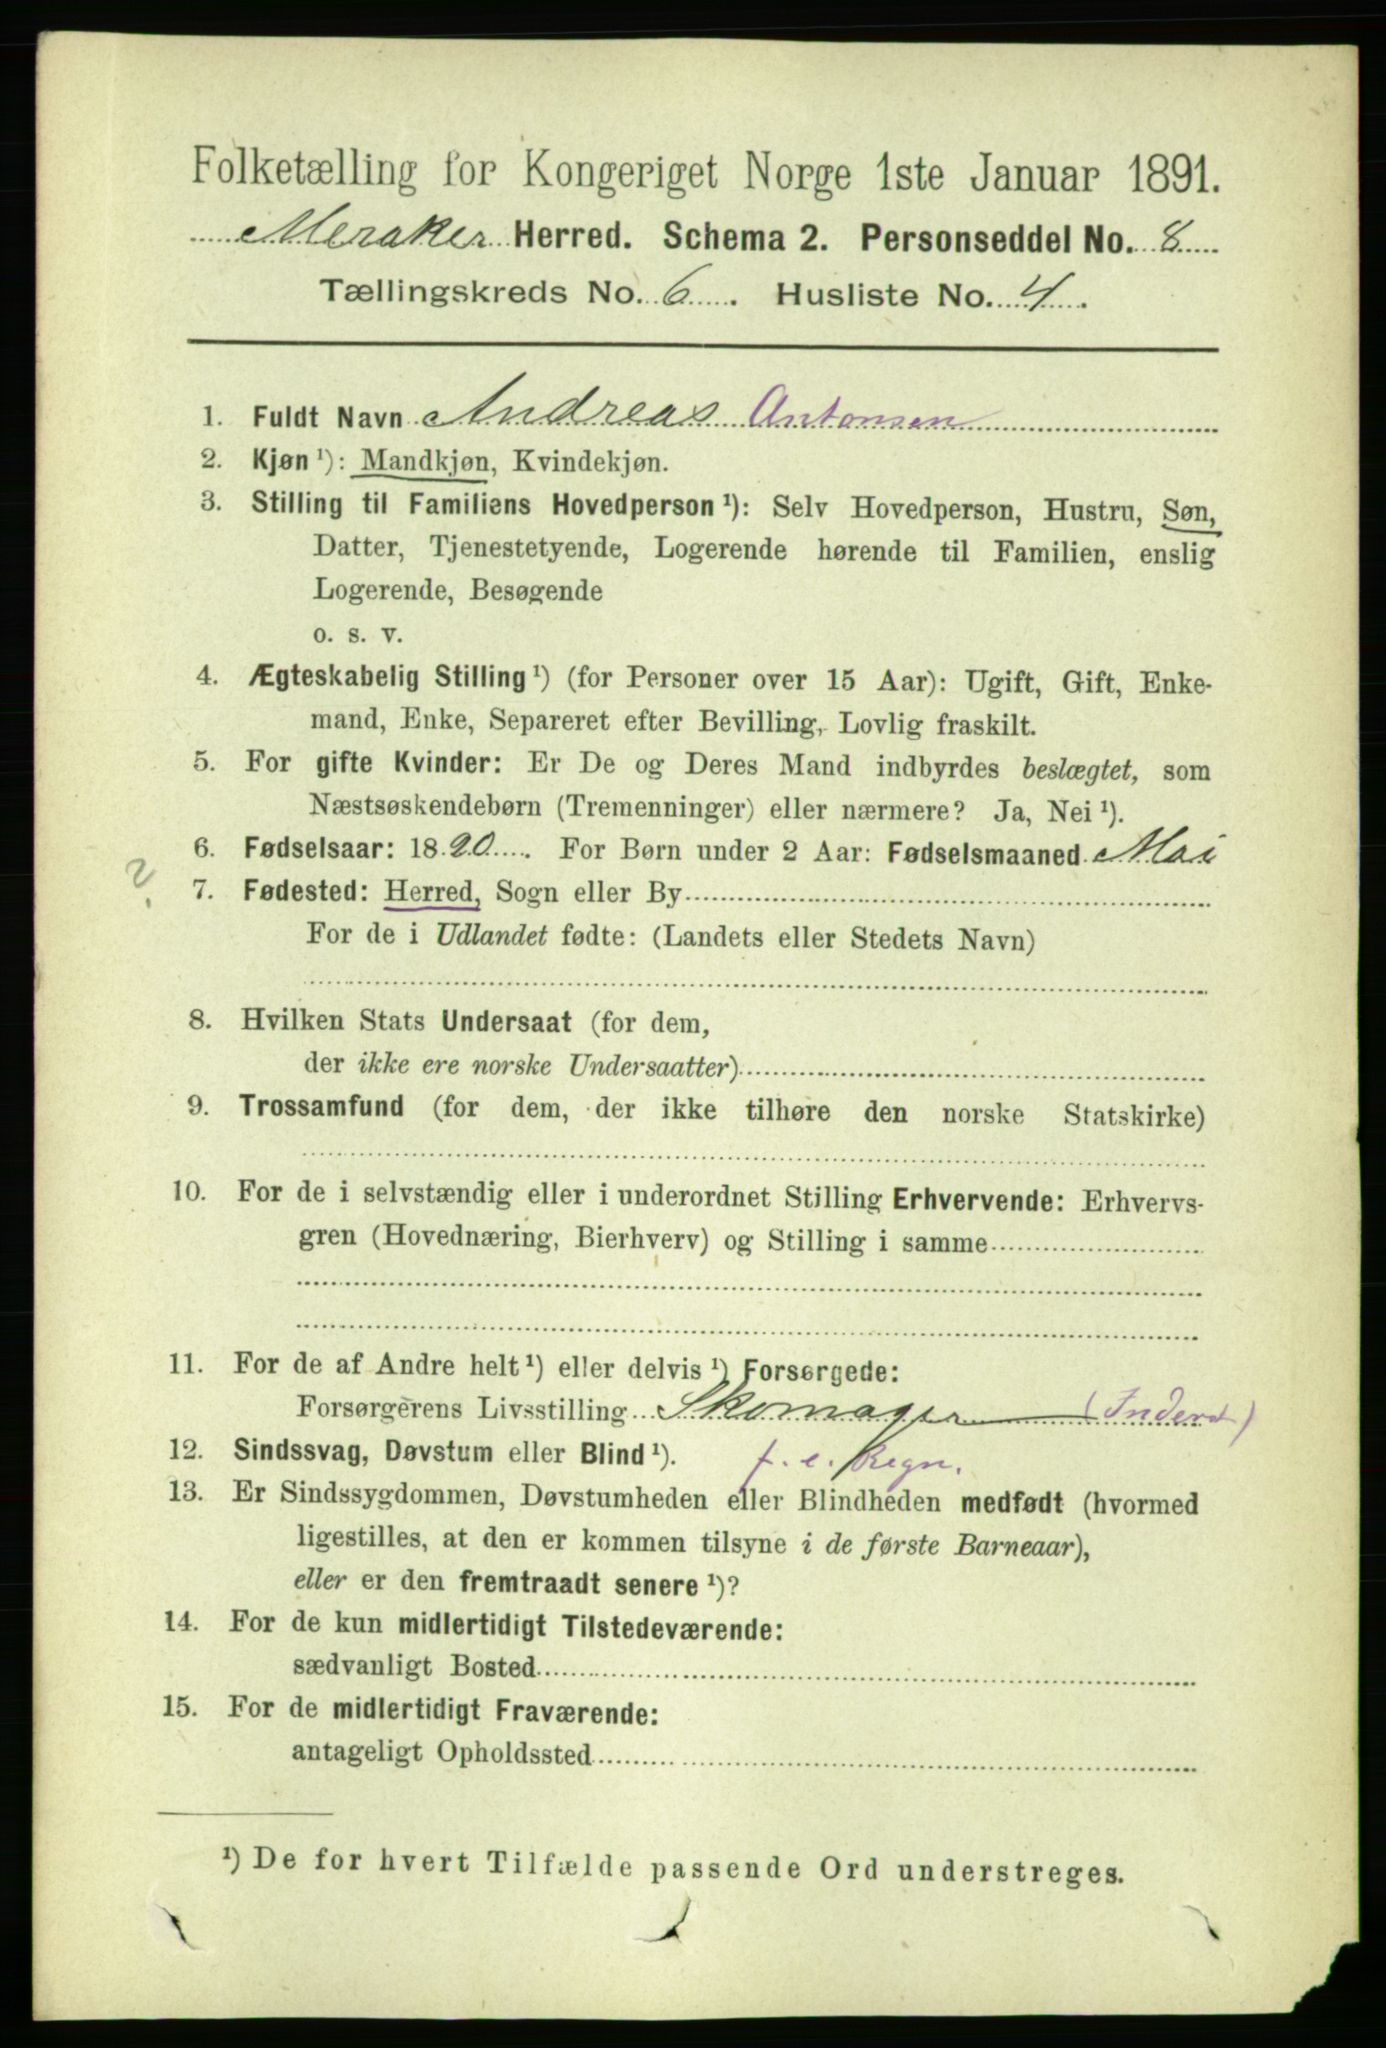 Folketælling for Kongeriget Norge 1ste Januar 1891.
Meraker Herred. Schema 2. Personseddel No. 8
Tællingskreds No. 6. Husliste No. 4.
1. Fuldt Navn Andreas Antonsen
2. Kjøn ¹): Mandkjøn, Kvindekjøn.
3. Stilling til Familiens Hovedperson ¹): Selv Hovedperson, Hustru, Søn,
Datter, Tjenestetyende, Logerende hørende til Familien, enslig
Logerende, Besøgende
o. s. v.
4. Ægteskabelig Stilling ¹) (for Personer over 15 Aar): Ugift, Gift, Enke-
mand, Enke, Separeret efter Bevilling, Lovlig fraskilt.
5. For gifte Kvinder: Er De og Deres Mand indbyrdes beslægtet, som
Næstsøskendebørn (Tremenninger) eller nærmere? Ja, Nei ¹).
6. Fødselsaar: 1890. For Børn under 2 Aar: Fødselsmaaned Mai
? 7. Fødested: Herred, Sogn eller By
For de i Udlandet fødte: (Landets eller Stedets Navn)
8. Hvilken Stats Undersaat (for dem,
der ikke ere norske Undersaatter)
9. Trossamfund (for dem, der ikke tilhøre den norske Statskirke)
10. For de i selvstændig eller i underordnet Stilling Erhvervende: Erhvervs-
gren (Hovednæring, Bierhverv) og Stilling i samme
11. For de af Andre helt ¹) eller delvis ¹) Forsørgede:
Forsørgerens Livsstilling Skomager (Inderst)
12. Sindssvag, Døvstum eller Blind ¹). f. e. Regn.
13. Er Sindssygdommen, Døvstumheden eller Blindheden medfødt (hvormed
ligestilles, at den er kommen tilsyne i de første Barneaar),
eller er den fremtraadt senere ¹)?
14. For de kun midlertidigt Tilstedeværende:
sædvanligt Bosted
15. For de midlertidigt Fraværende:
antageligt Opholdssted
¹) De for hvert Tilfælde passende Ord understreges.